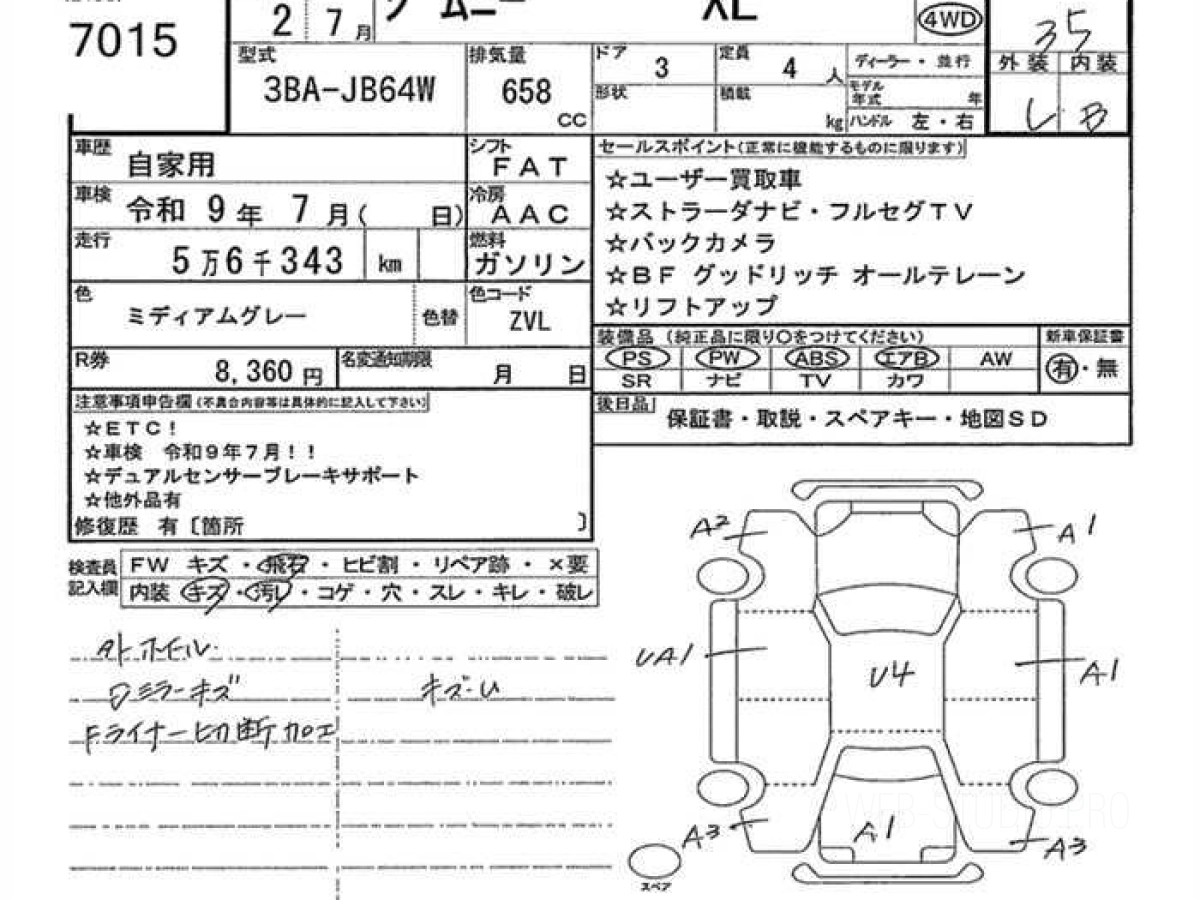 7015
2 7月
ジムニー XL
4WD
35
型式
3BA-JB64W
排気量
658
CC
ドア
3
定員
4人
ディーラー・並行
外装 内装
形状
積載
kg
モデル年式 年
ハンドル 左・右
B
車歴
自家用
シフト
FAT
車検
令和 9年 7月( 日)
冷房
AAC
走行
5万6千343 km
燃料
ガソリン
色
ミディアムグレー
色替
色コード
ZVL
R券
8,360円
名変通知期限
月 日
セールスポイント(正常に機能するものに限ります)
☆ユーザー買取車
☆ストラーダナビ・フルセグTV
☆バックカメラ
☆BF グッドリッチ オールテレーン
☆リフトアップ
装備品 (純正品に限り○をつけてください)
新車保証書
PS PW ABS エアB AW
有・無
SR ナビ TV カワ
後日品
保証書・取説・スペアキー・地図SD
注意事項申告欄(不具合内容等は具体的に記入して下さい)
☆ETC!
☆車検 令和9年7月!!
☆デュアルセンサーブレーキサポート
☆他外品有
修復歴 有〔箇所 〕
検査員記入欄
FW キズ・飛石・ヒビ割・リペア跡・×要
内装 キズ・汚レ・コゲ・穴・スレ・キレ・破レ
外ホイール
ミラーキズ
キズ・U
Fライナー切断加工
A2
A1
UA1
U4
A1
A3
A1
A3
スペア
WEB-STUDIO.PRO